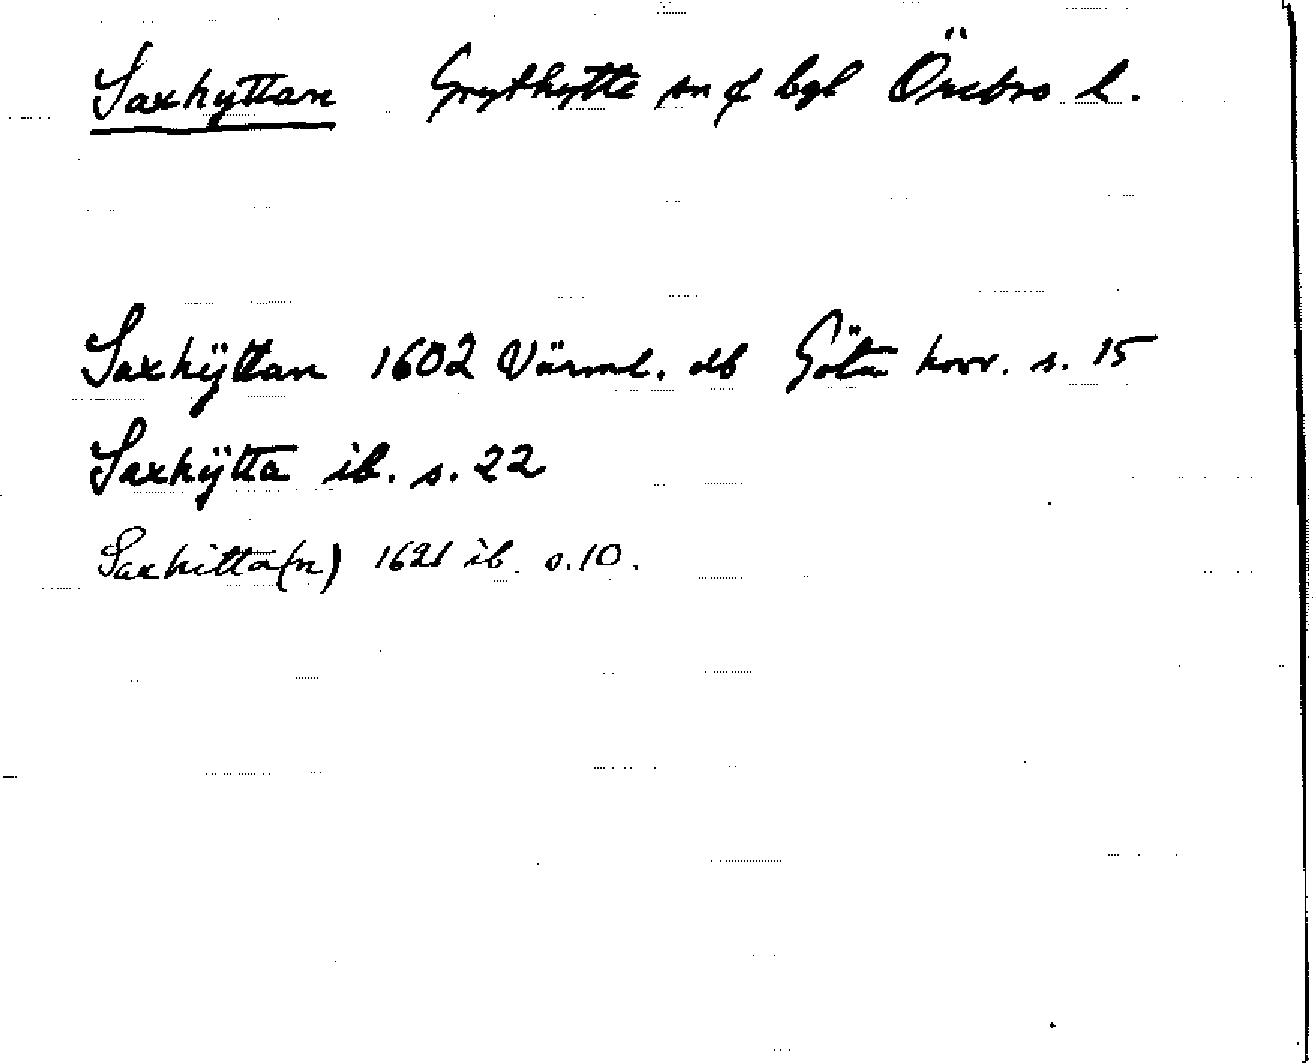 Saxhyttan Grythytte sn o bgl Örebro l.
Saxhÿttan 1602 Värml. db Göta hovr. s. 15
Saxhÿtta ib. s. 22
Saxhitta(n) 1621 ib. s. 10.